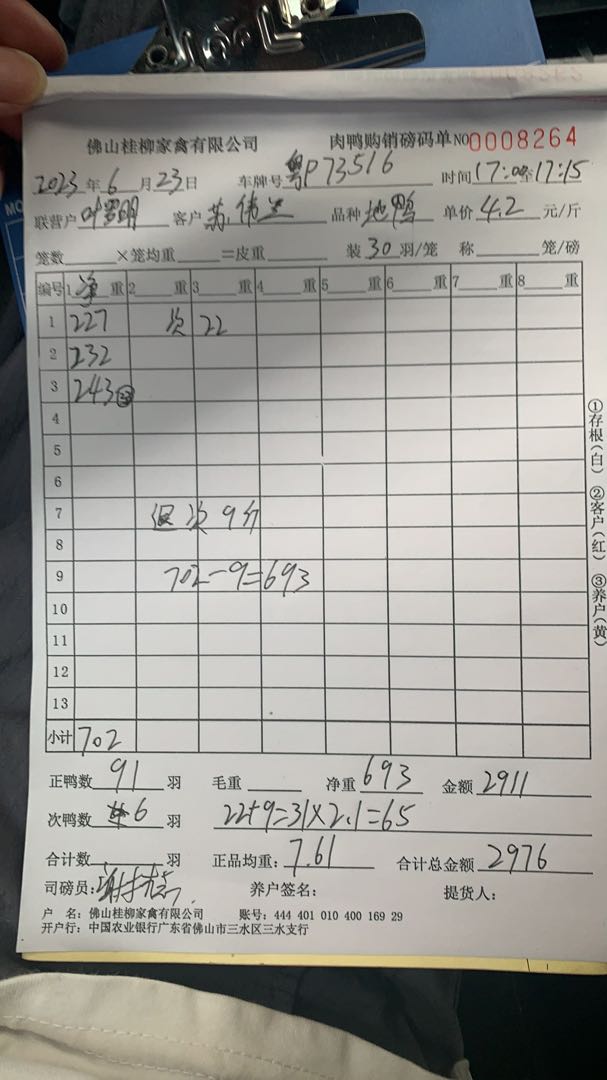 佛山桂柳家禽有限公司 肉鸭购销磅码单 NO 0008264
2023年6月23日 车牌号 粤P73516 时间17:00至17:15
联营户 客户 苏伟 品种 地鸭 单价 4.2 元/斤
笼数 ×笼均重 =皮重 装30羽/笼 称 笼/磅
编号 1净重 2 重 3 重 4 重 5 重 6 重 7 重 8 重
1 227 次 22
2 232
3 243
4
5
6
7 退次 9斤
8
9 702-9=693
10
11
12
13
小计 702
正鸭数 91 羽 毛重 净重 693 金额 2911
次鸭数 6 羽 22+9=31×2.1=65
合计数 羽 正品均重: 7.61 合计总金额 2976
司磅员: 养户签名: 提货人:
户 名: 佛山桂柳家禽有限公司 账号: 444 401 010 400 169 29
开户行: 中国农业银行广东省佛山市三水区三水支行
①存根(白) ②客户(红) ③养户(黄)